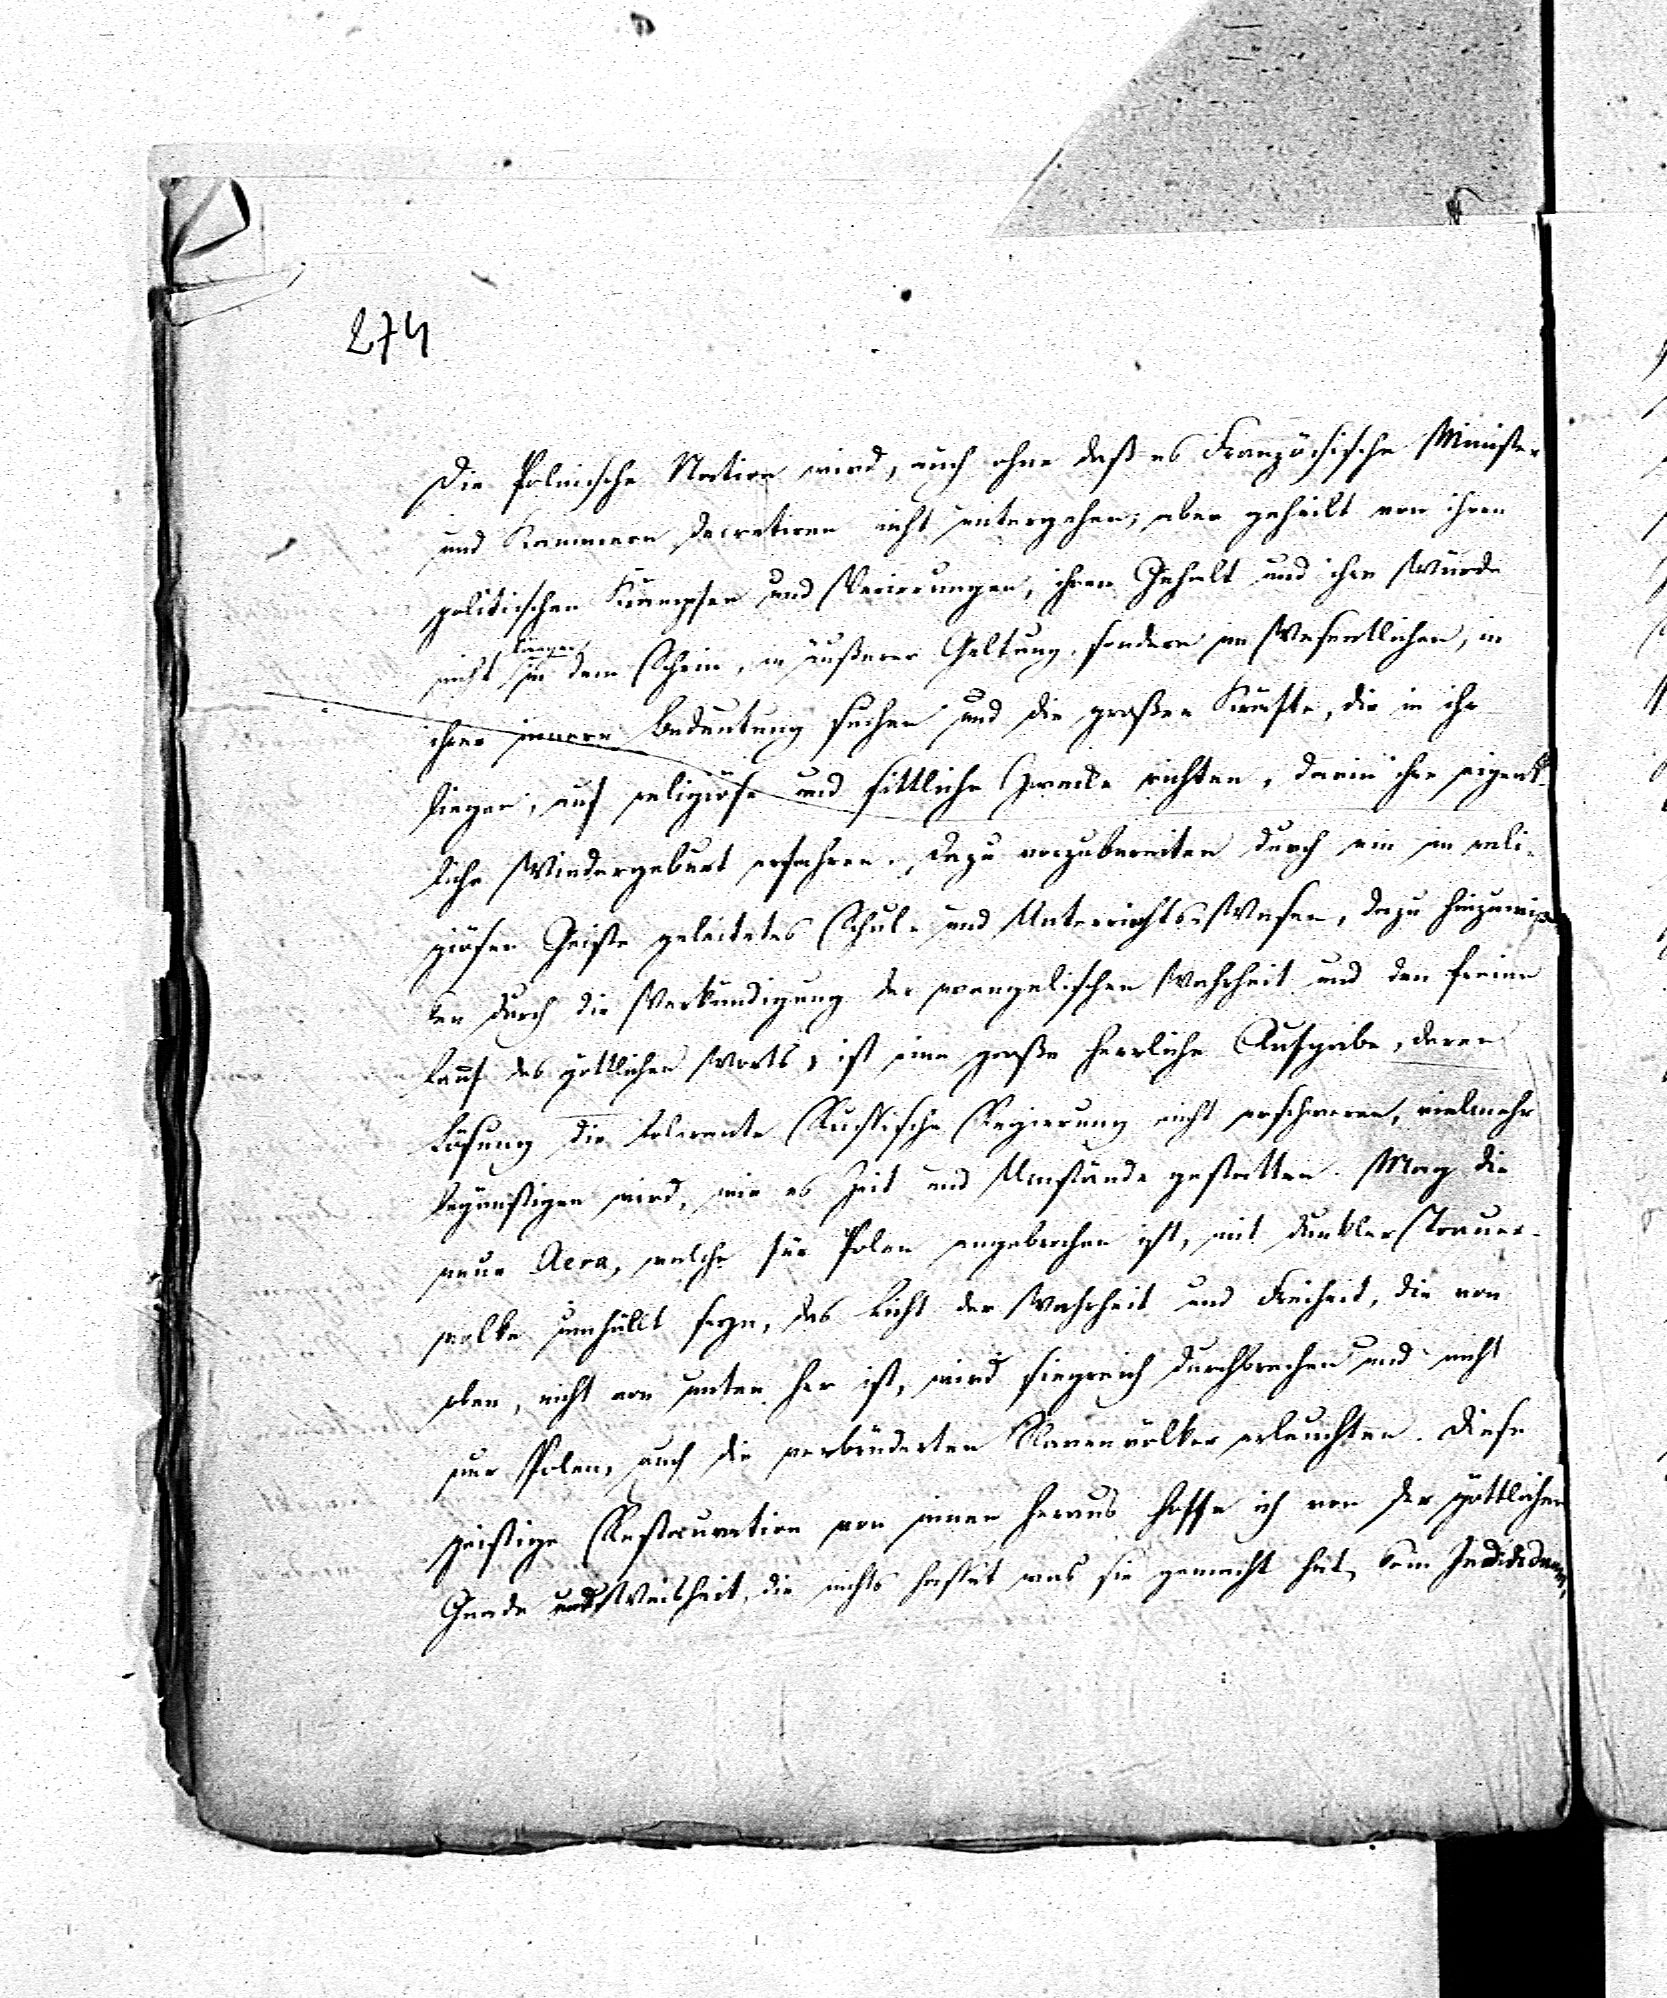 274
Die Polnische Nation wird, auch ohne daß es Französische Minister
und Kammern decretiren nicht untergehen; aber geheilt von ihren
politischen Kämpfen und Verirrungen, ihren Gehalt und ihre Würde
nicht länger in dem Schein, in äußerer Geltung, sondern im Wesentlichen, in
ihrer innern Bedeutung suchen und die großen Kräfte, die in ihr
liegen, auf religiöse und sittliche Zwecke richten, darin ihre eigent-
liche Wiedergeburt erfahren. Dazu vorzubereiten durch ein in reli-
giösem Geiste geleitetes Schul- und Unterrichts-Wesen, dazu hinzuwir-
ken durch die Verkündigung der evangelischen Wahrheit und den freien
Lauf des göttlichen Worts, ist eine große herrliche Aufgabe, deren
Lösung die tolerante Russische Regierung nicht erschweren, vielmehr
begünstigen wird, wie es Zeit und Umstände gestatten. Mag die
neue Aera, welche für Polen angebrochen ist, mit dunkler Trauer-
wolke umhüllt seyn, das Licht der Wahrheit und Freiheit, die von
oben, nicht von unten her ist, wird siegreich durchbrechen und nicht
nur Polen, auch die verbrüderten Slavenvölker erleuchten. Diese
geistige Restauration von innen heraus hoffe ich von der göttlichen
Gnade und Weisheit, die nichts hasset was sie gemacht hat, kein